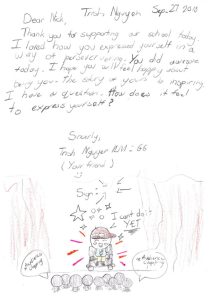 Dear Nick, Trinh Nguyen Sep. 27 2018
Thank you for supporting our school today.
I loved how you expressed yourself in a
way of persevering. You did awesome
today. I hope you will feel happy about
being you. The story of yours is inspiring.
I have a question. How does it feel
to express yourself?
Sincerely,
Trinh Nguyen
(Your friend)
Sign:
I can't do it
YET